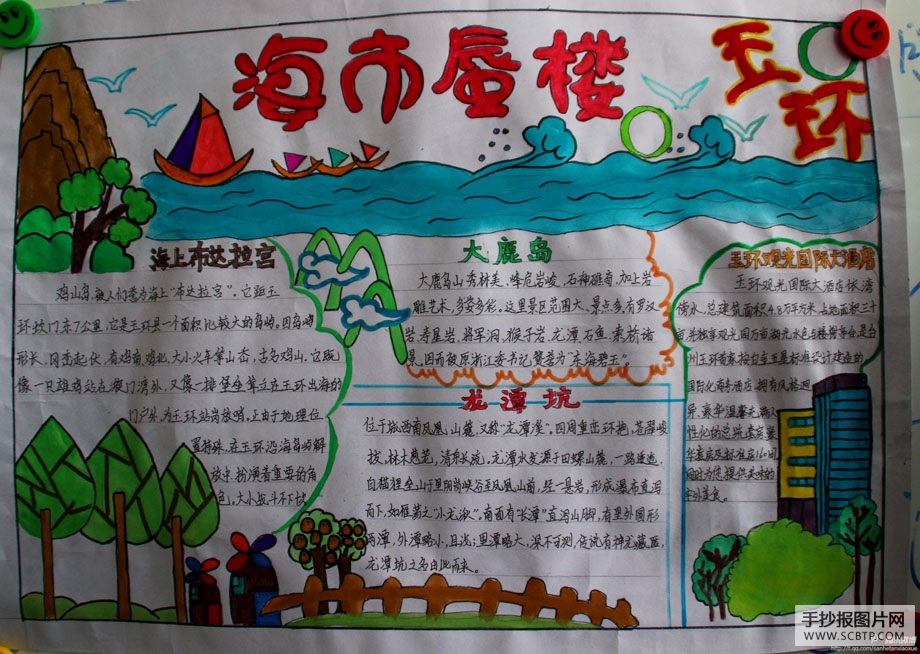 海市蜃楼
玉环
海上布达拉宫
鸡山岛,被人们誉为海上“布达拉宫”。它距玉
环坎门东7公里,它是玉环县一个面积比较大的岛屿。因岛屿
形长,冈峦起伏,有鸡南、鸡北、大小火年等山岙,古名鸡山,它既
像一只雄鸡站在坎门湾外,又像一排堡垒耸立在玉环出海的
门户外,为玉环站岗放哨。正由于地理位
置特殊,在玉环沿海岛屿解
放中,扮演着重要的角
色,大小战斗不下
大鹿岛
大鹿岛山秀林美,峰危岩峻,石神礁奇,加上岩
雕艺术,多姿多彩。这里景区范围大,景点多,有罗汉
岩、寿星岩、将军洞、猴子岩、龙潭石鱼、索桥诸
景,因而被原浙江委书记赞誉为“东海碧玉”。
龙潭坑
位于城西南凤凰山麓,又称“龙潭溪”。四周重峦环抱,苍翠峻
拔,林木葱茏,清泉长流。龙潭水发源于田螺山麓,一路逶迤,
自猫狸仝山于里阴岗峡谷至凤凰山前,经一悬岩,形成瀑布直泻
而下,如雁荡之“小龙湫”。南面有“长潭”直泻山脚,有里外圆形
两潭,外潭略小,且浅;里潭略大,深不可测,传说有神龙藏匿,
龙潭坑之名由此而来。
玉环观光国际大酒店
玉环观光国际大酒店依湾
傍水,总建筑面积4.8万平方米,占地面积三十
亩,并独享观光园万亩湖光水色与楼榭亭台,是台
州玉环首家按白金五星标准设计建造的
国际化商务酒店,拥有风格迥
异、豪华温馨充满人
性化的总统套房、豪
华套房及标准房160间
同时为您提供美味的
中外美食。
手抄报图片网
WWW.SCBTP.COM
http://t.qq.com/sanhetanxiaoxue